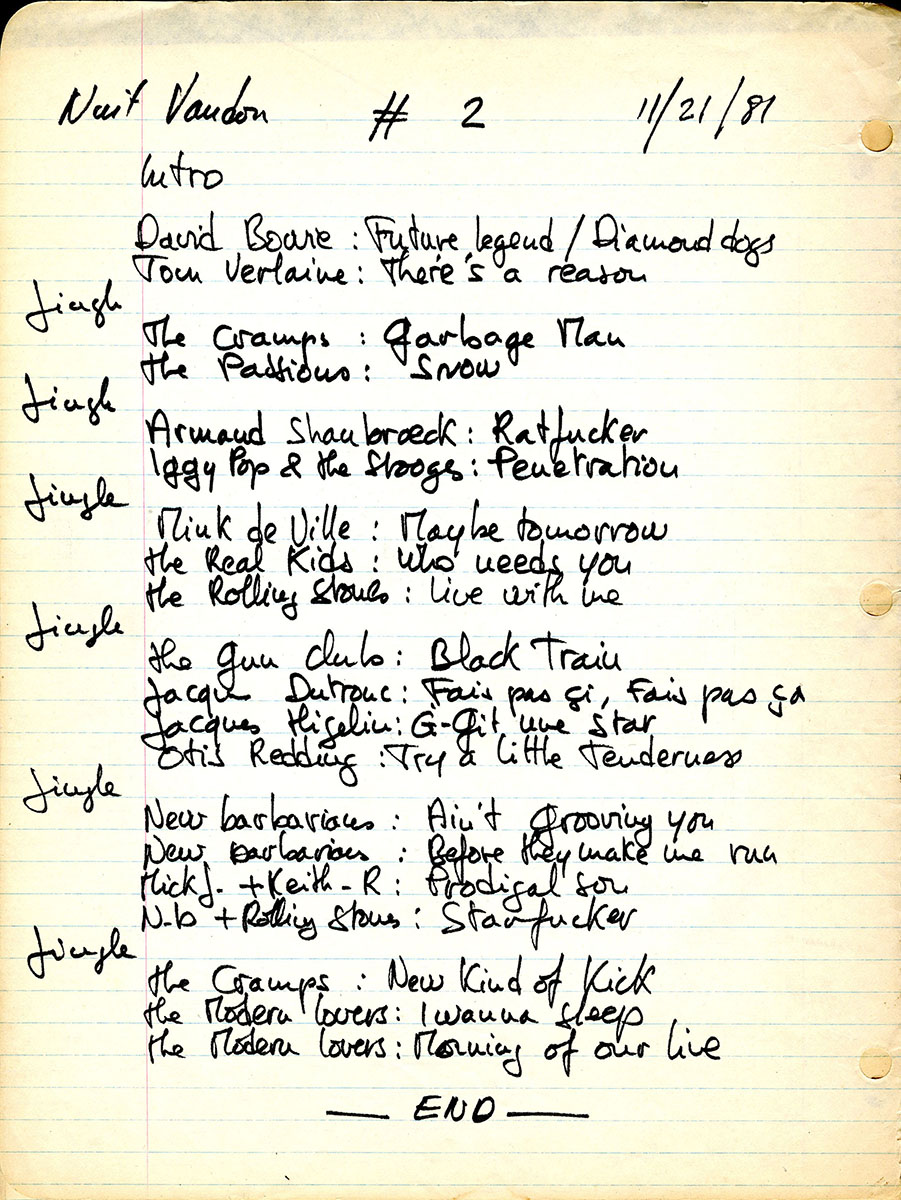 Nuit Vaudou # 2 11/21/81
Intro
David Bowie : Future legend / Diamond dogs
Tom Verlaine : There's a reason
Jingle
The Cramps : Garbage Man
the Passions : Snow
Jingle
Armand Shaubroeck : Ratfucker
Iggy Pop & the Stooges : Penetration
Jingle
Mink de Ville : Maybe tomorrow
the Real Kids : Who needs you
the Rolling Stones : Live with me
Jingle
the Gun club : Black Train
Jacques Dutronc : Fais pas çi, Fais pas ça
Jacques Higelin : G-Git une star
Otis Redding : Try a little Tenderness
Jingle
New barbarians : Ain't grooving you
New barbarians : Before they make me run
Mick J. + Keith - R : Prodigal son
N-b + Rolling Stones : Starfucker
Jingle
the Cramps : New Kind of Kick
the Modern lovers : I wanna sleep
the Modern lovers : Morning of our live
— END —